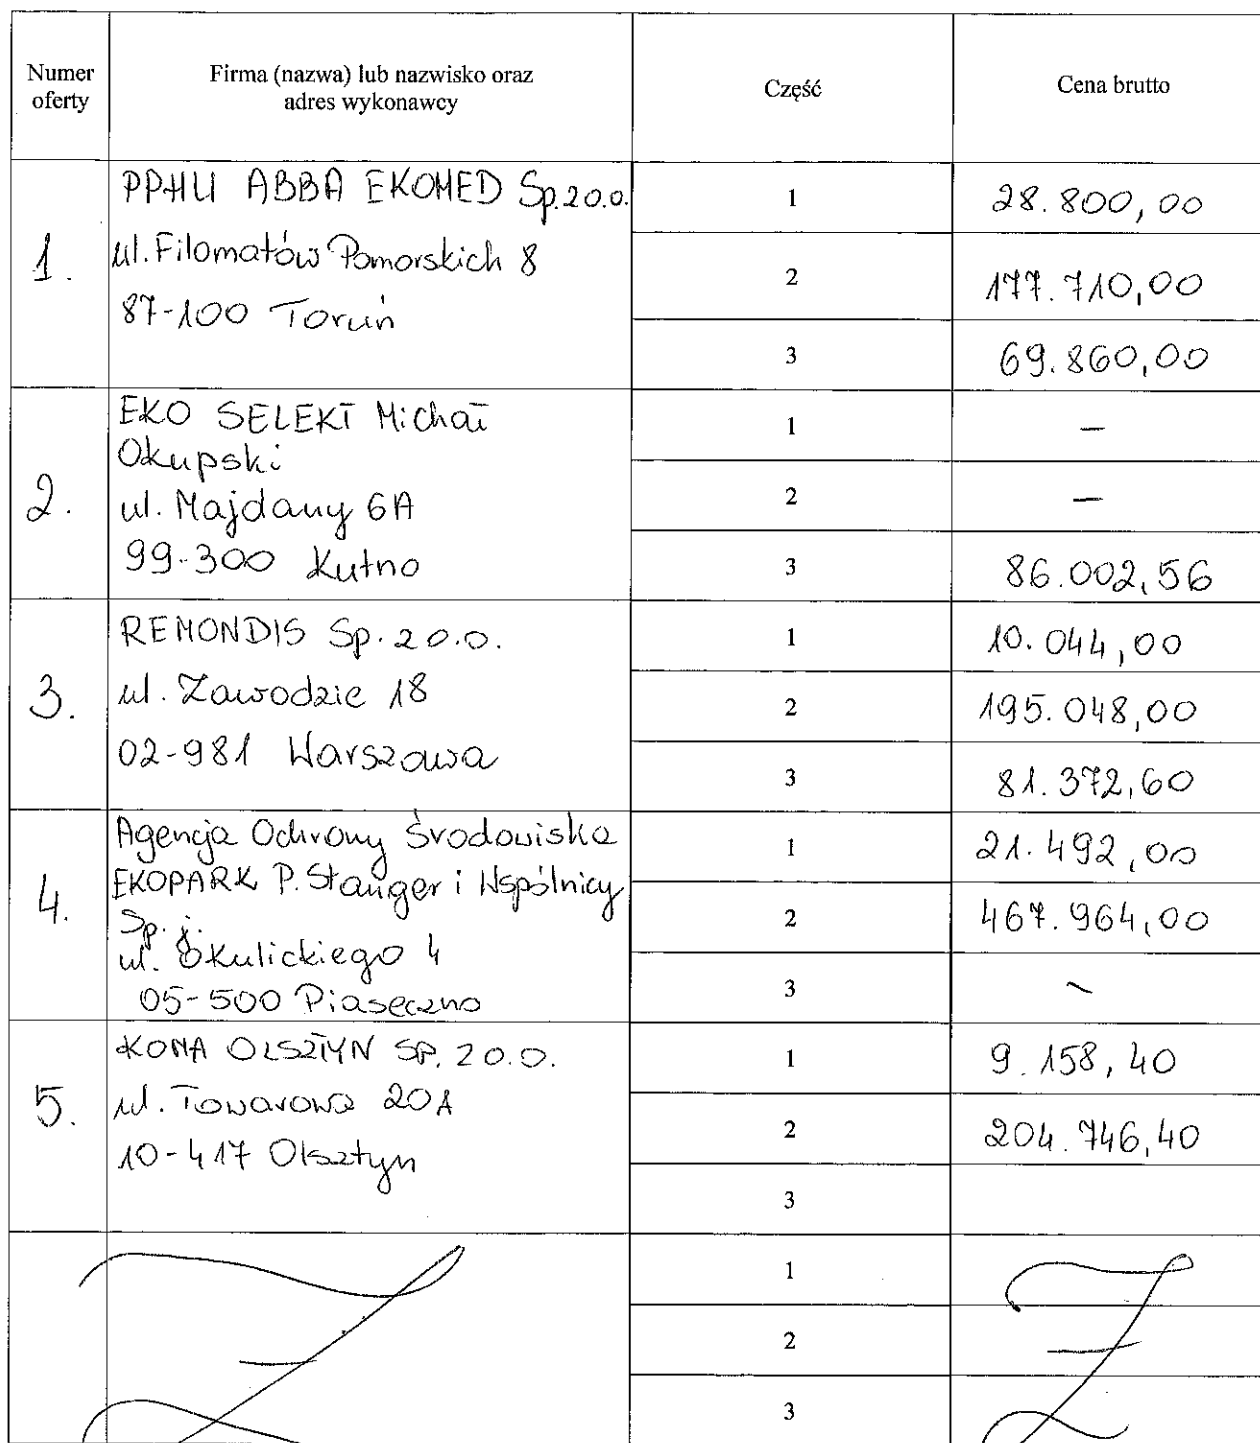 Numer
oferty
Firma (nazwa) lub nazwisko oraz
adres wykonawcy
Część
Cena brutto
1.
PPHU ABBA EKOMED Sp.zo.o.
ul.Filomatów Pomorskich 8
87-100 Toruń
1
28.800,00
2
177.710,00
3
69.860,00
2.
EKO SELEKT Michał
Okupski
ul. Majdany 6A
99-300 Kutno
1
–
2
–
3
86.002,56
3.
REMONDIS Sp. zo.o.
ul. Zawodzie 18
02-981 Warszawa
1
10.044,00
2
195.048,00
3
81.372,60
4.
Agencja Ochrony Środowiska
EKOPARK P. Stanger i Wspólnicy
Sp. j.
ul. Okulickiego 4
05-500 Piaseczno
1
21.492,00
2
467.964,00
3
–
5.
KOMA OLSZTYN SP. ZO.O.
ul. Towarowa 20A
10-417 Olsztyn
1
9.158,40
2
204.746,40
3
1
2
3